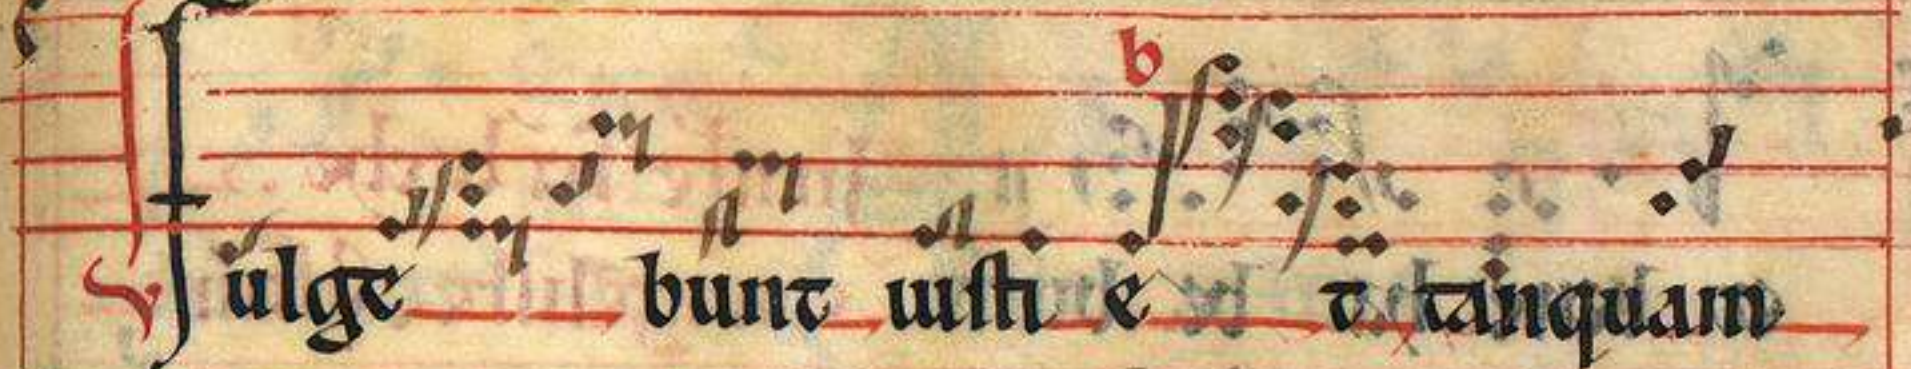 b
V Fulge bunt iusti e t tanquam